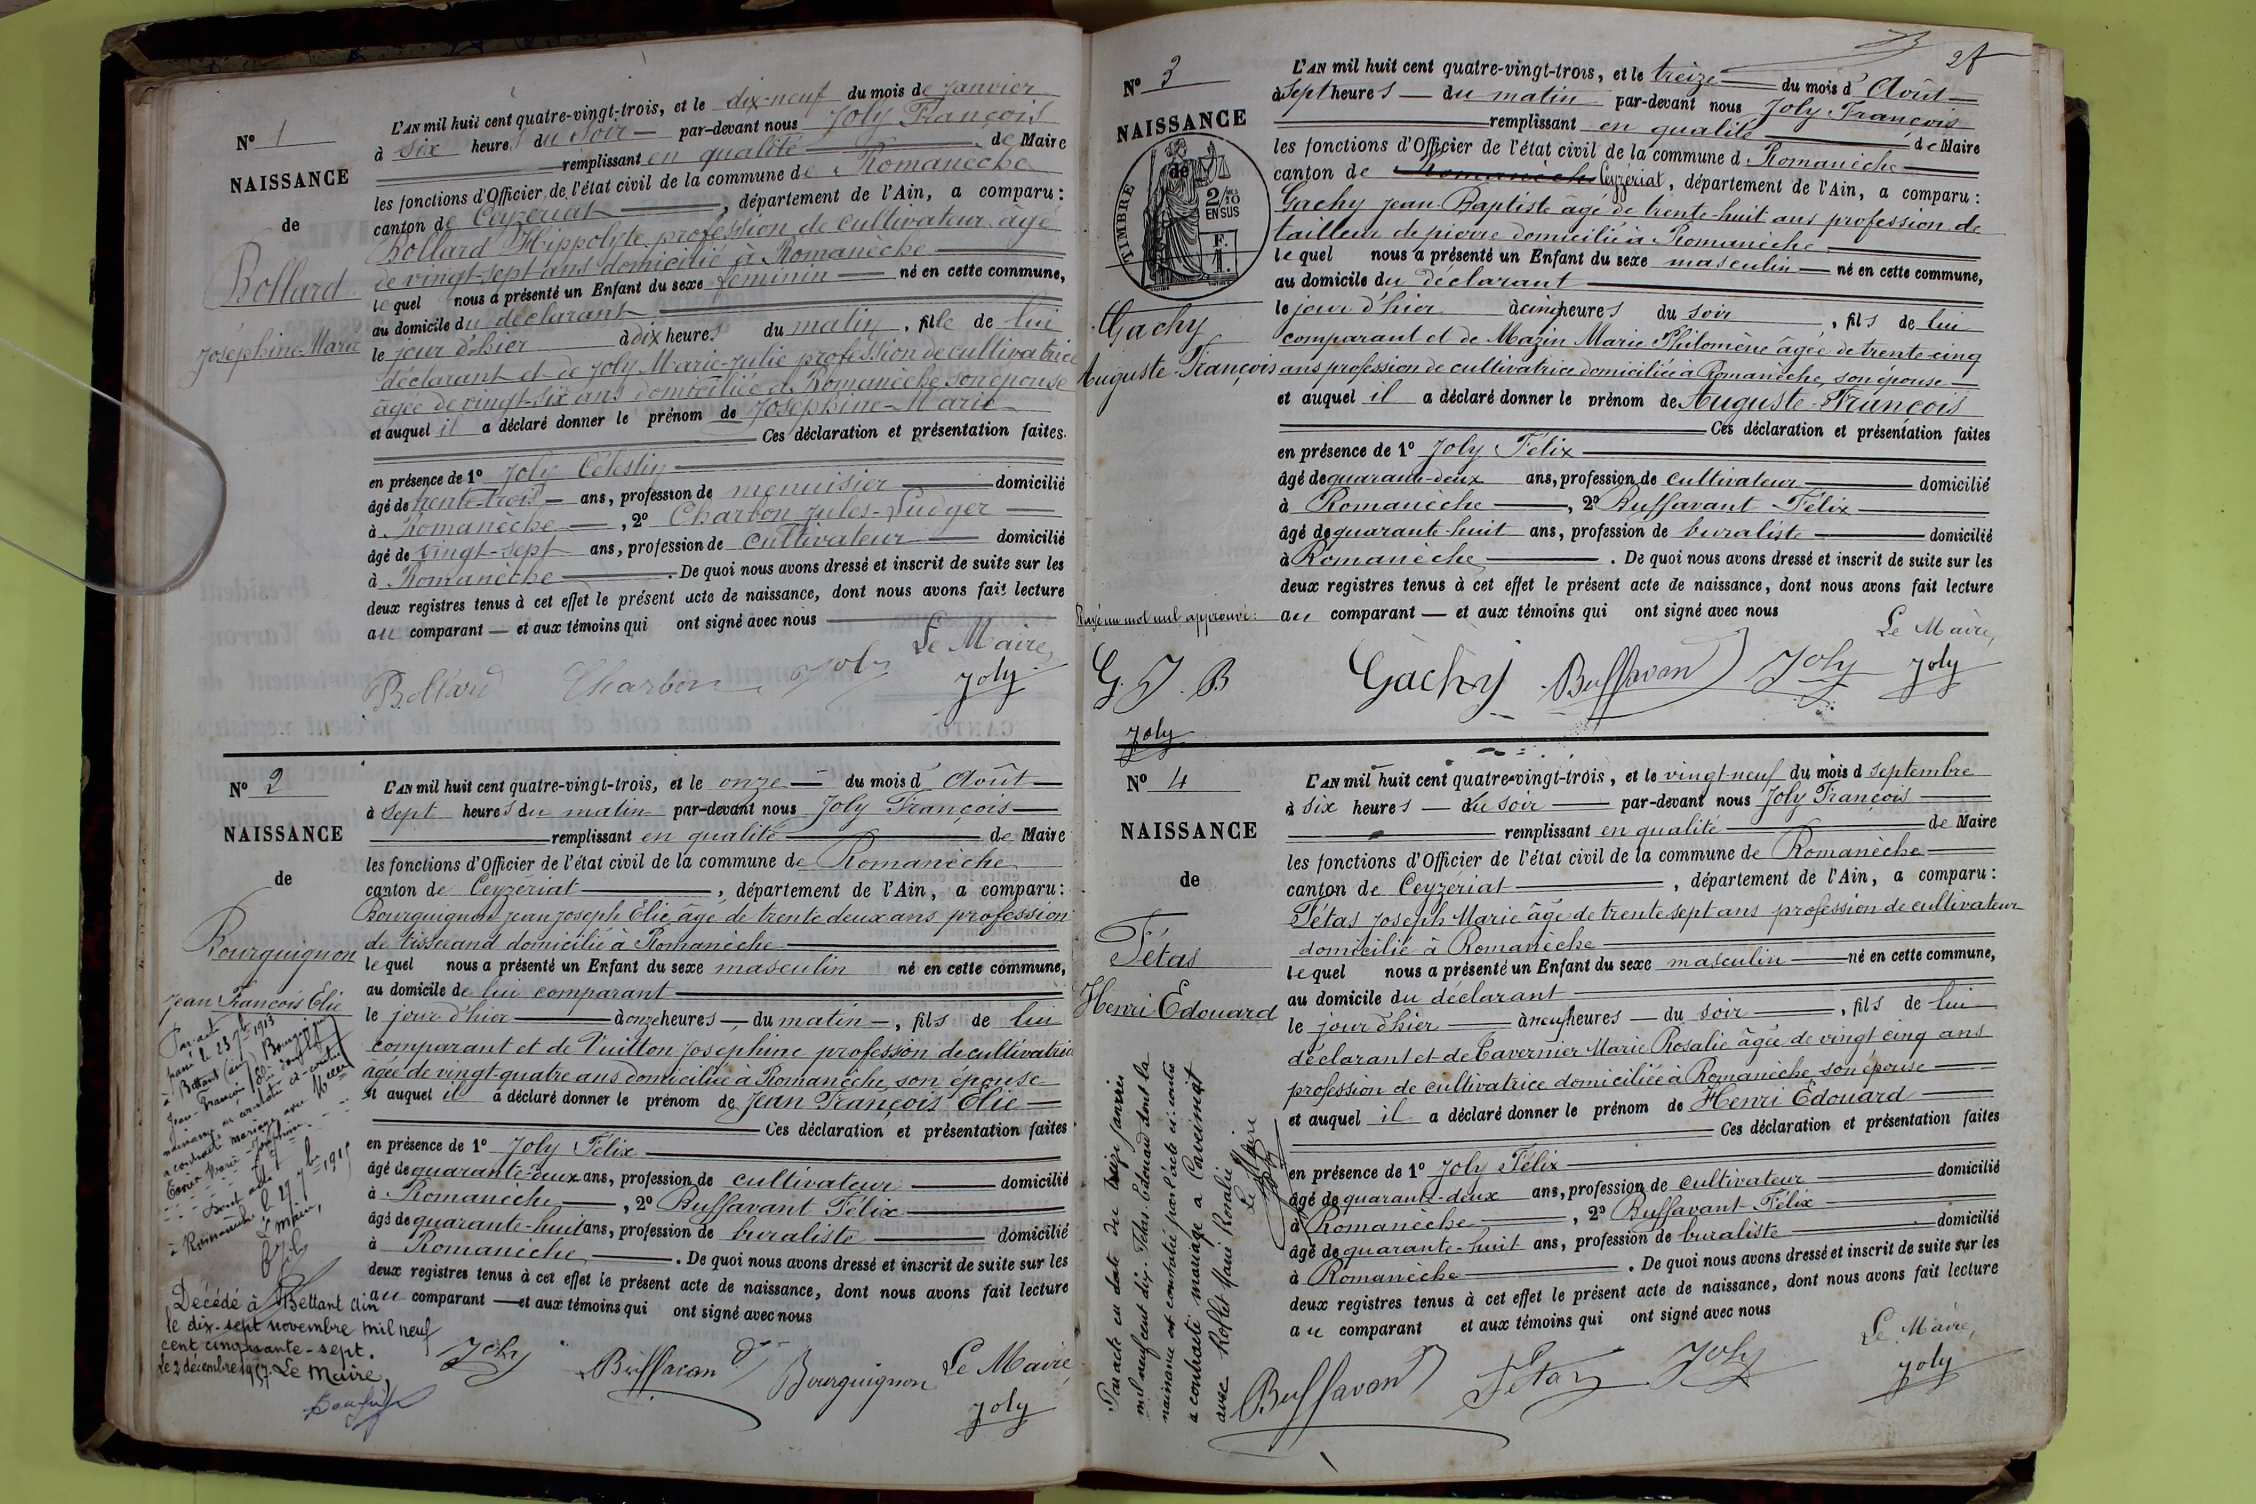 N° 1
NAISSANCE
de
Bollard
Joséphine-Marie
L'AN mil huit cent quatre-vingt-trois, et le dix-neuf du mois de Janvier
à six heures du soir par-devant nous Joly François
remplissant en qualité de Maire
les fonctions d'Officier de l'état civil de la commune de Romanèche
canton de Ceyzériat, département de l'Ain, a comparu :
Bollard Hippolyte profession de cultivateur âgé
de vingt-sept ans domicilié à Romanèche
lequel nous a présenté un Enfant du sexe féminin né en cette commune,
au domicile du déclarant
le jour d'hier à dix heures du matin, fille de lui
déclarant et de Joly Marie-Julie profession de cultivatrice
âgée de vingt-six ans domiciliée à Romanèche son épouse
et auquel il a déclaré donner le prénom de Joséphine-Marie
Ces déclaration et présentation faites
en présence de 1° Joly Célestin
âgé de trente-trois ans, profession de menuisier domicilié
à Romanèche, 2° Charbon Jules-Ludger
âgé de vingt-sept ans, profession de cultivateur domicilié
à Romanèche. De quoi nous avons dressé et inscrit de suite sur les
deux registres tenus à cet effet le présent acte de naissance, dont nous avons fait lecture
au comparant et aux témoins qui ont signé avec nous
Le Maire,
Bollard Charbon Joly Joly
N° 2
NAISSANCE
de
Bourguignon
Jean François Elie
Par acte
passé le 23 7bre 1913
à Bettant (Ain) Bourguignon
Jean-François Elie dont la
naissance est constatée ci-contre
a contracté mariage avec Melle
Marie-Joséphine
Dont acte
à Romanèche le 27 7bre 1915
Le Maire,
Joly
Décédé à Bettant Ain
le dix-sept novembre mil neuf
cent cinquante-sept.
Le 2 décembre 1957. Le Maire,
L'AN mil huit cent quatre-vingt-trois, et le onze du mois d'Août
à sept heures du matin par-devant nous Joly François
remplissant en qualité de Maire
les fonctions d'Officier de l'état civil de la commune de Romanèche
canton de Ceyzériat, département de l'Ain, a comparu :
Bourguignon Jean Joseph Elie âgé de trente deux ans profession
de tisserand domicilié à Romanèche
lequel nous a présenté un Enfant du sexe masculin né en cette commune,
au domicile de lui comparant
le jour d'hier à onze heures du matin, fils de lui
comparant et de Vuitton Joséphine profession de cultivatrice
âgée de vingt quatre ans domiciliée à Romanèche, son épouse
et auquel il a déclaré donner le prénom de Jean François Elie
Ces déclaration et présentation faites
en présence de 1° Joly Félix
âgé de quarante-deux ans, profession de cultivateur domicilié
à Romanèche, 2° Buffavant Félix
âgé de quarante-huit ans, profession de buraliste domicilié
à Romanèche. De quoi nous avons dressé et inscrit de suite sur les
deux registres tenus à cet effet le présent acte de naissance, dont nous avons fait lecture
au comparant et aux témoins qui ont signé avec nous
Joly Buffavan Bourguignon Le Maire,
Joly
N° 3
NAISSANCE
de
TIMBRE
2/10 EN SUS
F. 1.
Gachy
Auguste-François
L'AN mil huit cent quatre-vingt-trois, et le treize du mois d'Août
à sept heures du matin par-devant nous Joly François
remplissant en qualité de Maire
les fonctions d'Officier de l'état civil de la commune d Romanèche
canton de Romanèche Ceyzériat, département de l'Ain, a comparu :
Gachy Jean-Baptiste âgé de trente-huit ans profession de
tailleur de pierre domicilié à Romanèche
lequel nous a présenté un Enfant du sexe masculin né en cette commune,
au domicile du déclarant
le jour d'hier à cinq heures du soir, fils de lui
comparant et de Mazin Marie Philomène âgée de trente cinq
ans profession de cultivatrice domiciliée à Romanèche, son épouse
et auquel il a déclaré donner le prénom de Auguste-François
Ces déclaration et présentation faites
en présence de 1° Joly Félix
âgé de quarante-deux ans, profession de cultivateur domicilié
à Romanèche, 2° Buffavant Félix
âgé de quarante huit ans, profession de buraliste domicilié
à Romanèche. De quoi nous avons dressé et inscrit de suite sur les
deux registres tenus à cet effet le présent acte de naissance, dont nous avons fait lecture
Rayé un mot nul approuvé : au comparant et aux témoins qui ont signé avec nous
Le Maire,
G. J. B Gachy Buffavan Joly Joly
Joly
N° 4
NAISSANCE
de
Tétas
Henri Edouard
Par acte en date du treize janvier
mil neuf cent dix, Tétas Edouard dont la
naissance est constatée par l'acte ci-contre
a contracté mariage à
avec Rollet Marie Rosalie
Le Maire
Joly
L'AN mil huit cent quatre-vingt-trois, et le vingt neuf du mois d septembre
à six heures du soir par-devant nous Joly François
remplissant en qualité de Maire
les fonctions d'Officier de l'état civil de la commune de Romanèche
canton de Ceyzériat, département de l'Ain, a comparu :
Tétas Joseph Marie âgé de trente sept ans profession de cultivateur
domicilié à Romanèche
lequel nous a présenté un Enfant du sexe masculin né en cette commune,
au domicile du déclarant
le jour d'hier à neuf heures du soir, fils de lui
déclarant et de Tavernier Marie Rosalie âgée de vingt cinq ans
profession de cultivatrice domiciliée à Romanèche, son épouse
et auquel il a déclaré donner le prénom de Henri Edouard
Ces déclaration et présentation faites
en présence de 1° Joly Félix
âgé de quarante-deux ans, profession de cultivateur domicilié
à Romanèche, 2° Buffavant Félix
âgé de quarante-huit ans, profession de buraliste domicilié
à Romanèche. De quoi nous avons dressé et inscrit de suite sur les
deux registres tenus à cet effet le présent acte de naissance, dont nous avons fait lecture
au comparant et aux témoins qui ont signé avec nous
Le Maire,
Buffavan Tétas Joly Joly